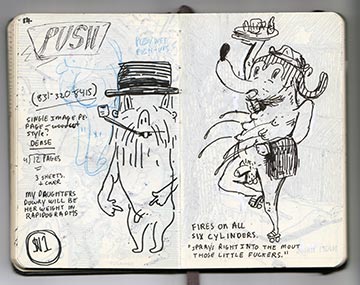 PUSH
(831-320-8415)
SINGLE IMAGE PE-
PAGE - woodcut
STYLE?
DENSE
4|12 PAGES
=
3 SHEETS.
+ COVER
MY DAUGHTERS
DOWRY WILL BE
HER WEIGHT IN
RAPIDOGRAPHS
FIRES ON ALL
SIX CYLINDERS.
"SPRAYS RIGHT INTO THE MOUT
THOSE LITTLE FUCKERS."